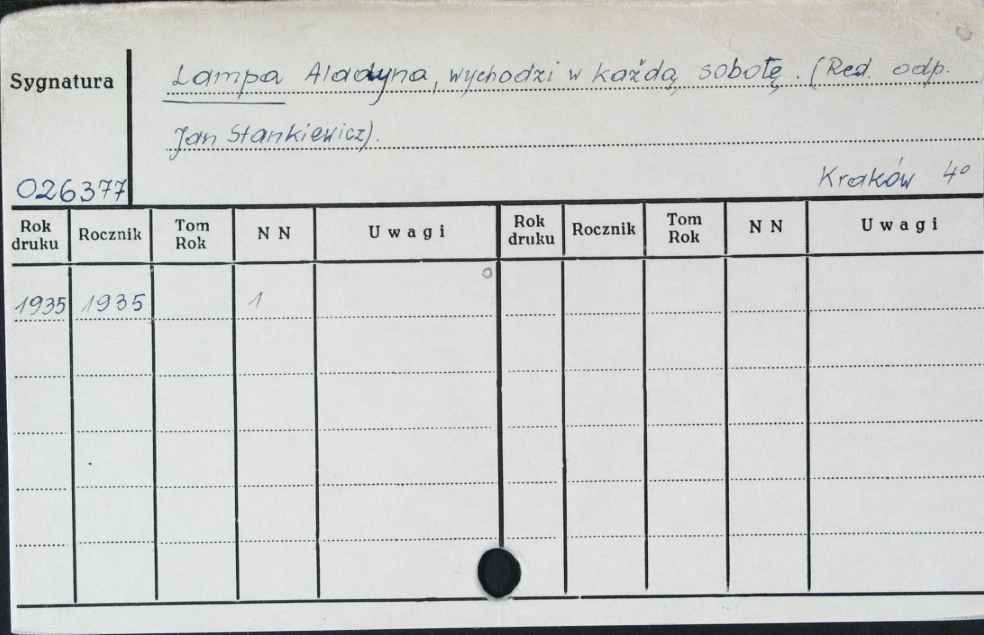 Sygnatura
Lampa Aladyna, wychodzi w każdą sobotę. (Red. odp.
Jan Stankiewicz).
026377
Kraków 4°
Rok druku Rocznik Tom Rok N N Uwagi Rok druku Rocznik Tom Rok N N Uwagi
1935 1935 1